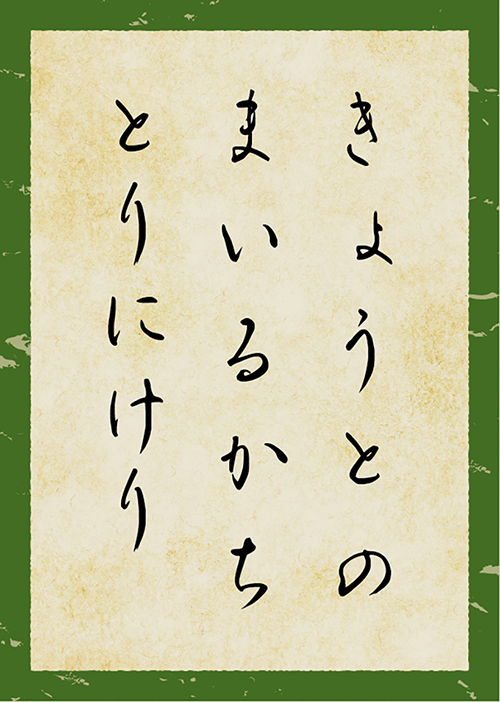 きょうとの
まいるかち
とりにけり